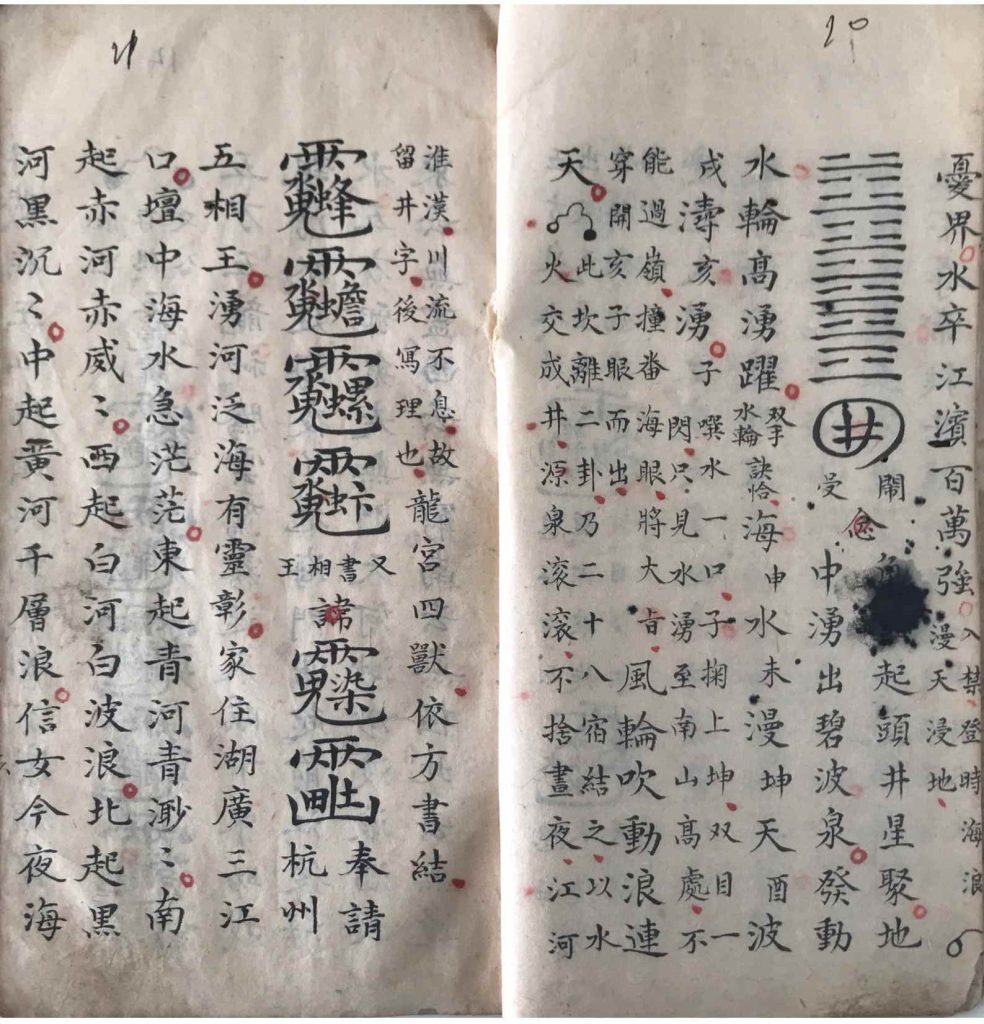 20
憂界水卒江濱百萬強
入禁登時海浪
漫天浸地
井
鬧
受
念
起頭井星聚地
中湧出碧波泉發動
水輪高湧躍
双手
水輪
訣恰
海申水未漫坤天酉波
戌濤亥湧子
噀水一口子掬上坤双目一
閃只見水湧至南山高處不
能過嶺撞畨海眼將大旨
穿開亥子眼而出
風輪吹動浪連
天
此坎離二卦乃二十八宿結之以水
火交成井源泉滾滾不捨晝夜江河
21
淮漢川流不息故
留井字後寫理也
龍宮四獸依方書結
又書相王
諱
奉請
杭州
五相王湧河泛海有靈彰家住湖廣三江
口壇中海水急茫茫東起青河青渺〻南
起赤河赤威〻西起白河白波浪北起黑
河黑沉〻中起黃河千層浪信女今夜海